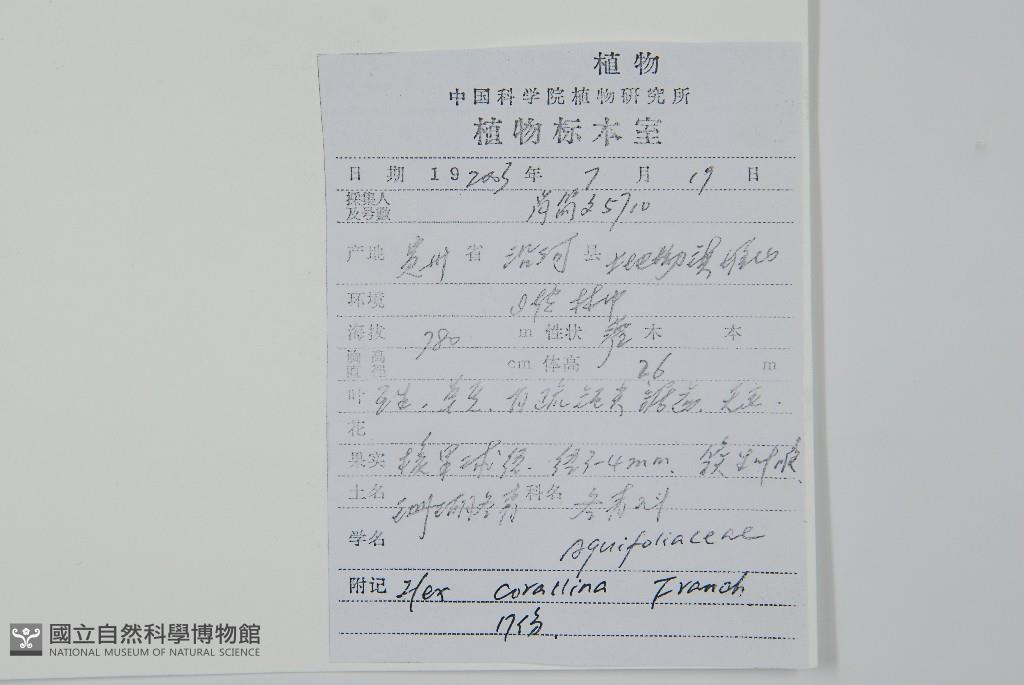 植物
中国科学院植物研究所
植物标本室
日期 19 2003 年 7 月 19 日
採集人
及号数 5710
产地 贵州 省 沿河 县
环境 林中
海拔 780 m 性状 灌 木 本
胸高
直径 cm 体高 2.6 m
叶 互生.
花
果实 核果球径. 径3-4mm. 簇生叶腋
土名 珊瑚冬青 科名 冬青科
学名 Aquifoliaceae
附记 Ilex corallina Franch
17份.
國立自然科學博物館
NATIONAL MUSEUM OF NATURAL SCIENCE